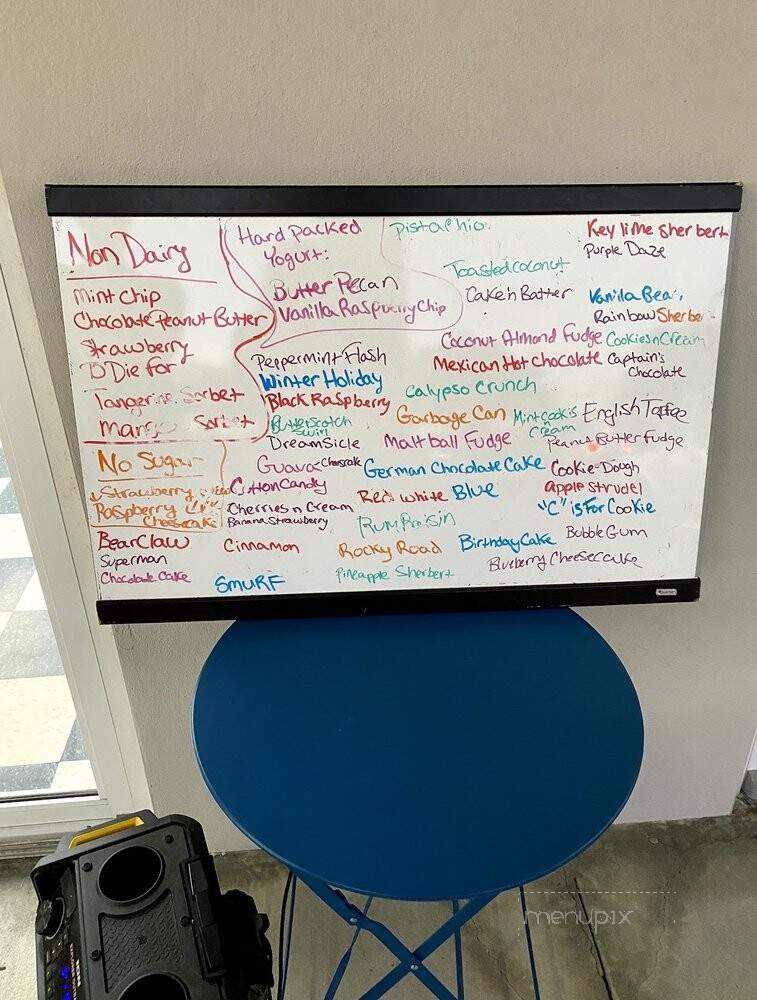 Non Dairy
Mint Chip
Chocolate Peanut Butter
Strawberry
D Die for
Tangerine Sorbet
Mango Sorbet
No Sugar
Strawberry
Raspberry
Cheesecake
BearClaw
Superman
Chocolate Cake
Hard Packed
Yogurt:
Butter Pecan
Vanilla Raspberry Chip
Peppermint Flash
Winter Holiday
Black Raspberry
Butterscotch
Swirl
DreamSicle
Guava Cheesecake
Cotton Candy
Cherries n Cream
Banana Strawberry
Cinnamon
Smurf
Pistachio
Toasted coconut
Cake n Batter
Coconut Almond Fudge
Mexican Hot chocolate
Calypso Crunch
Garbage Can
Mint cookies
n
cream
Malt ball Fudge
German Chocolate Cake
Red White Blue
Rum Raisin
Rocky Road
Birthday Cake
Pineapple Sherbert
Key lime Sherbert
Purple Daze
Vanilla Bean
Rainbow Sherbe
Cookies n Cream
Captain's
Chocolate
English Toffee
Peanut Butter Fudge
Cookie-Dough
Apple Strudel
"C" is For Cookie
Bubble Gum
Blueberry Cheesecake
menupix